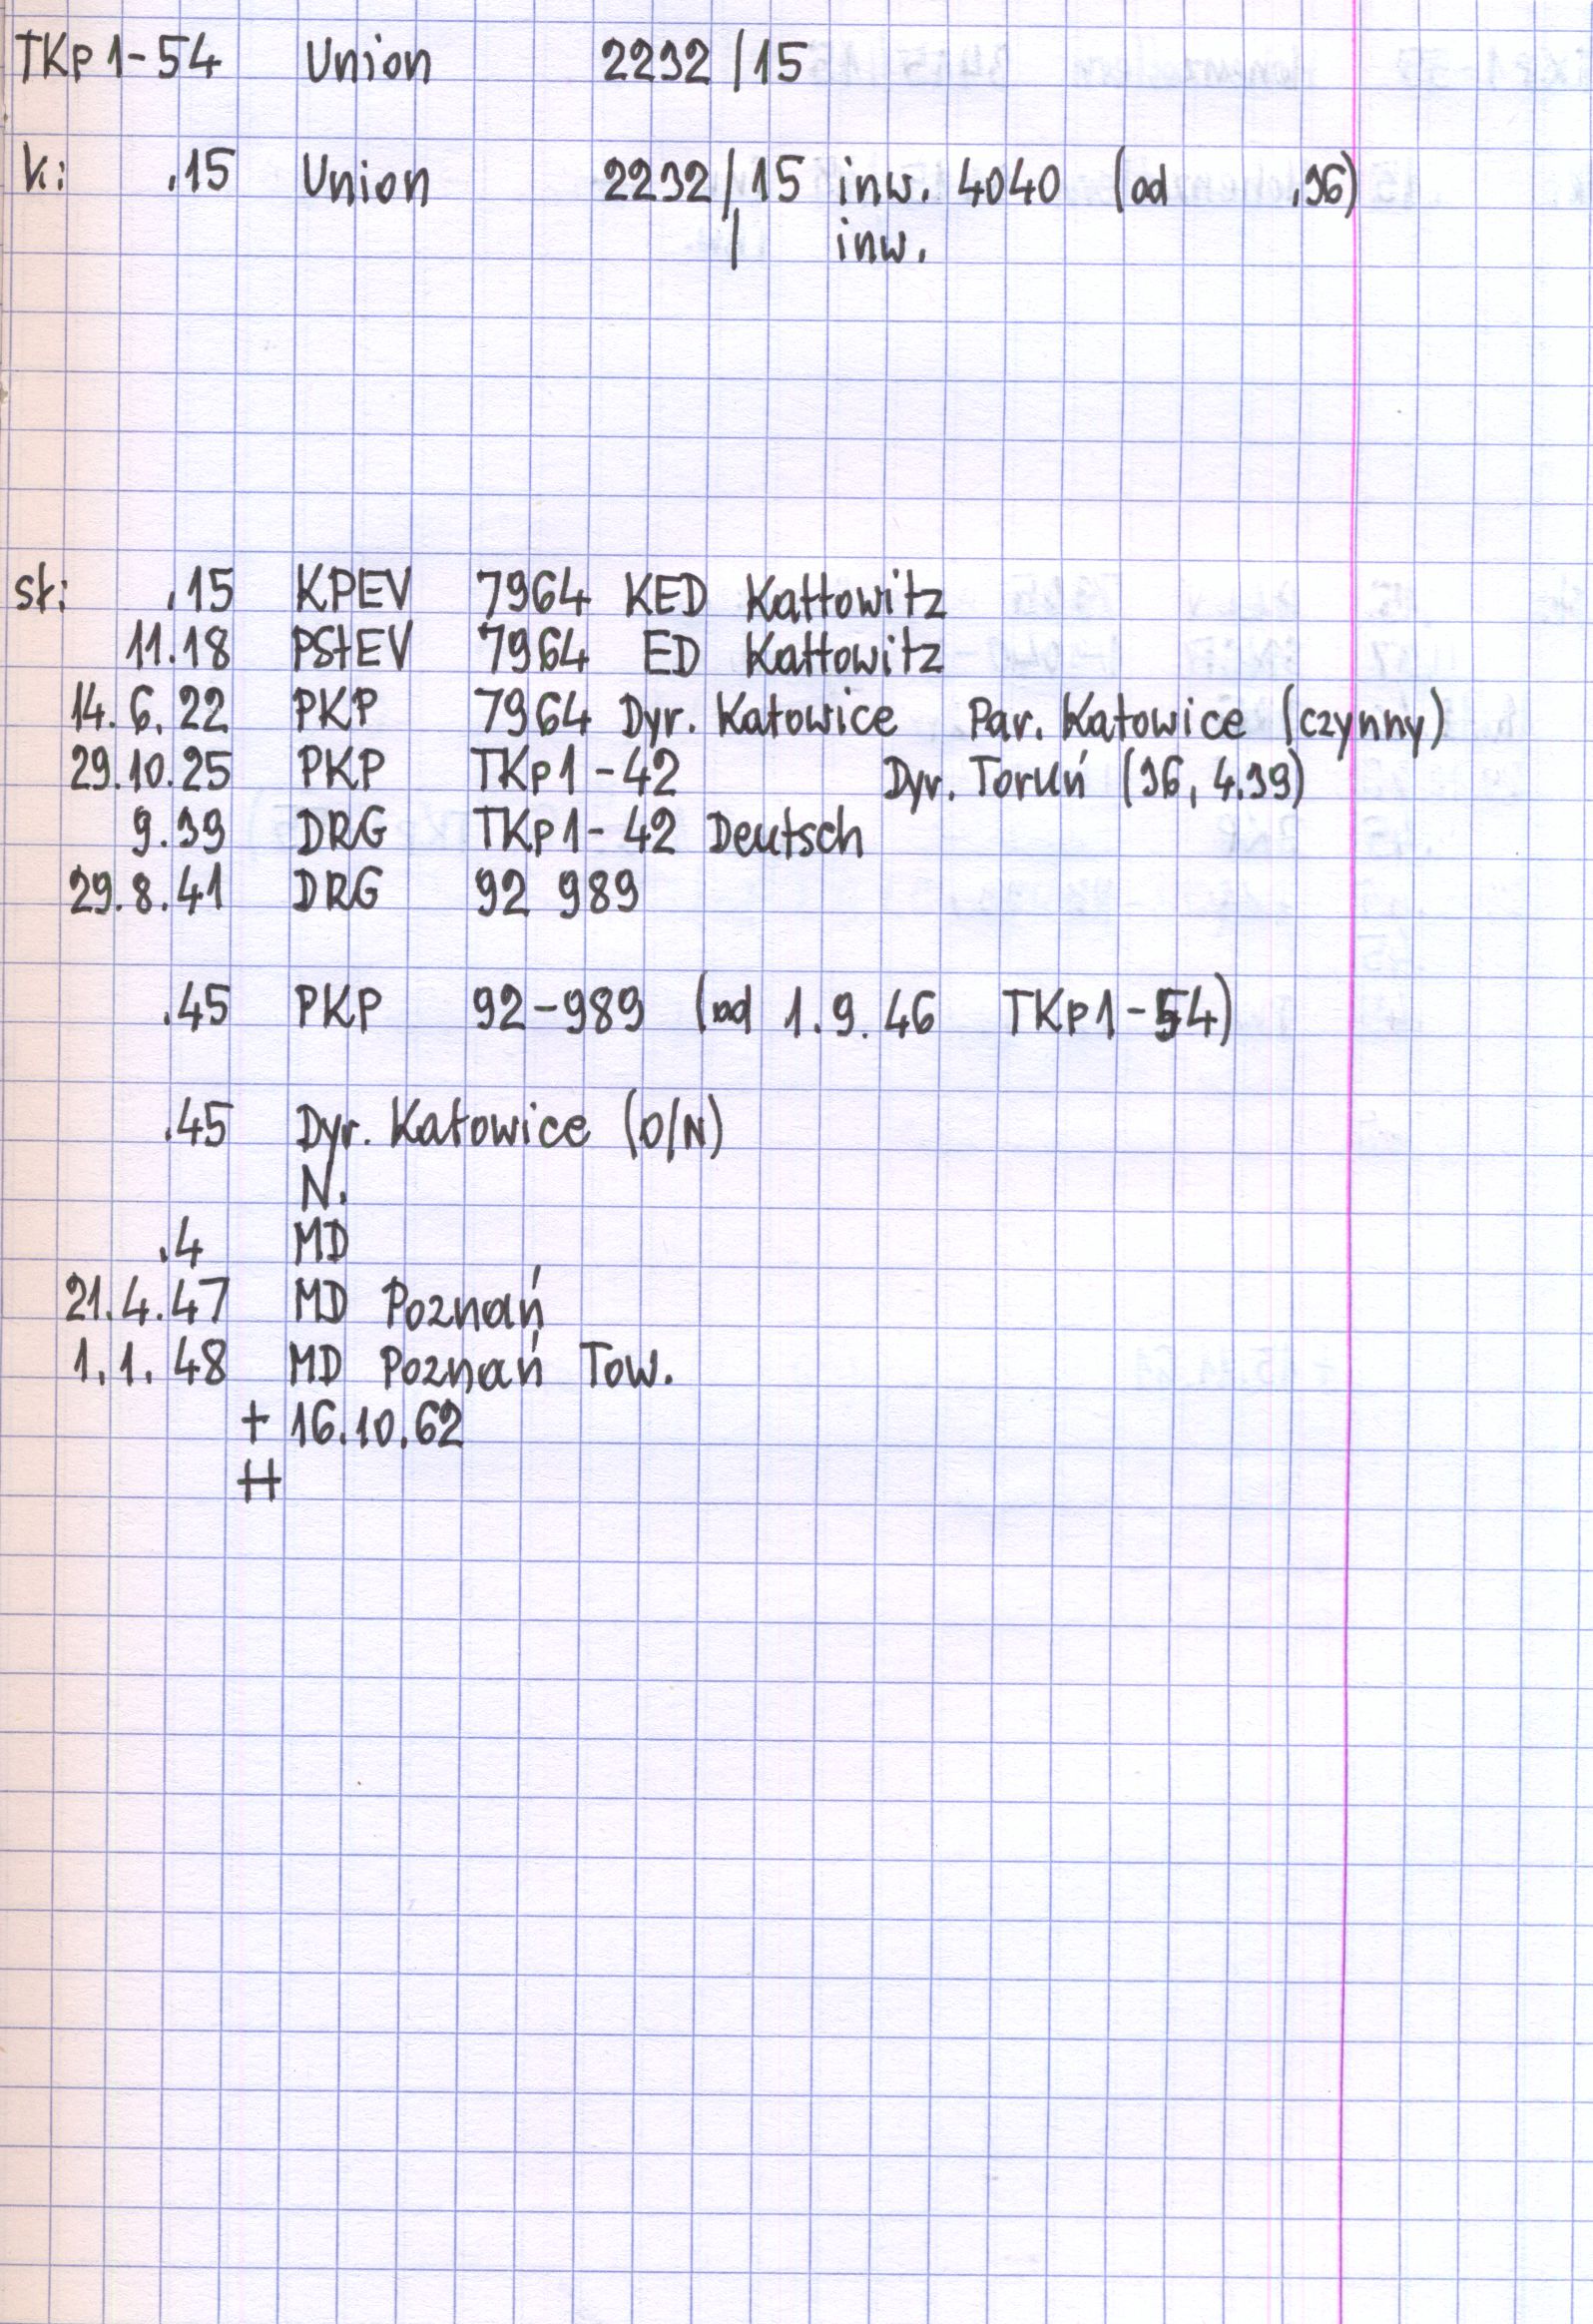 TKp1-54 Union 2232/15
k: .15 Union 2232/15 inw. 4040 (od .36)
/ inw.
st: .15 KPEV 7964 KED Kattowitz
11.18 PStEV 7964 ED Kattowitz
14.6.22 PKP 7964 Dyr. Katowice Par. Katowice (czynny)
29.10.25 PKP TKp1-42 Dyr. Toruń (36, 4.39)
9.39 DRG TKp1-42 Deutsch
29.8.41 DRG 92 989
.45 PKP 92-989 (od 1.9.46 TKp1-54)
.45 Dyr. Katowice (O/N)
N.
.4 MD
21.4.47 MD Poznań
1.1.48 MD Poznań Tow.
+ 16.10.62
++